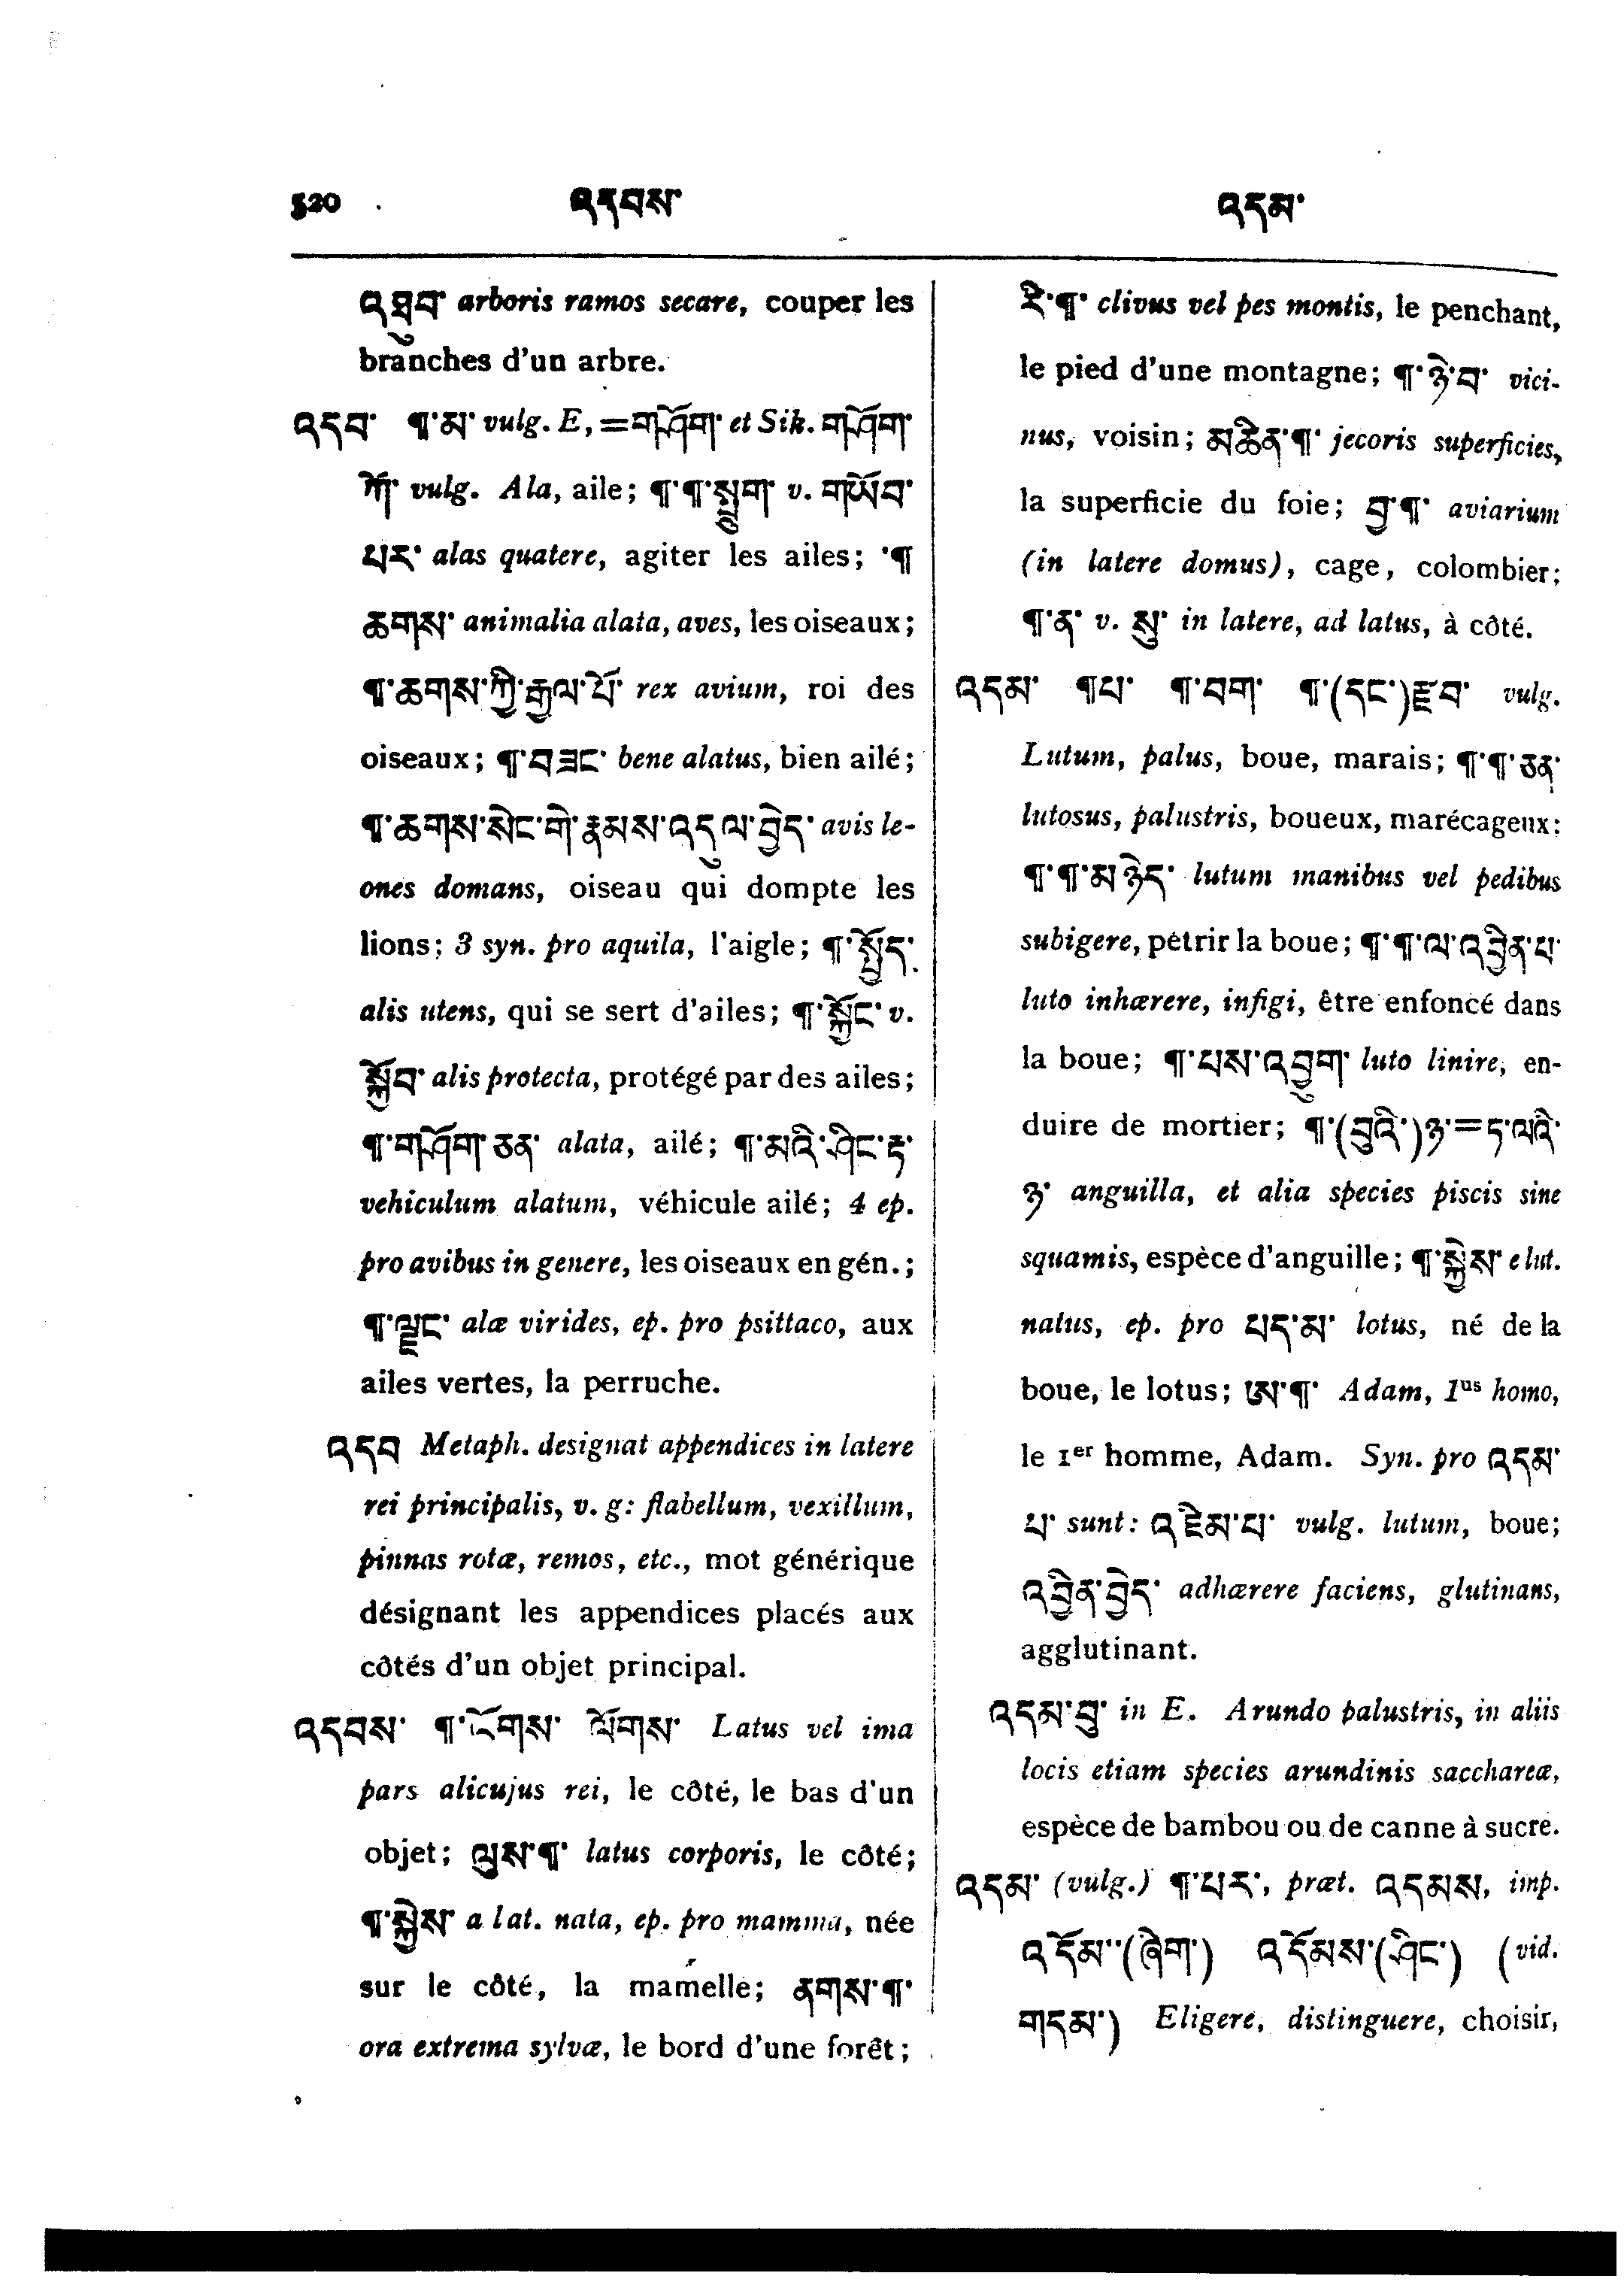 520 འདབས་ འདམ་
འཐུབ་ arboris ramos secare, couper les
branches d'un arbre.
འདབ་ ¶་མ་ vulg. E, =གཤོག་ et Sik. གཤོག་
ཀོ་ vulg. Ala, aile; ¶་¶་སྤྲུག་ v. གཡོབ་
པར་ alas quatere, agiter les ailes; ་¶
ཆགས་ animalia alata, aves, les oiseaux;
¶་ཆགས་ཀྱི་རྒྱལ་པོ་ rex avium, roi des
oiseaux; ¶་བཟང་ bene alatus, bien ailé;
¶་ཆགས་སེང་གེ་རྣམས་འདུལ་བྱེད་ avis le-
ones domans, oiseau qui dompte les
lions; 3 syn. pro aquila, l'aigle; ¶་སྤྱོད་
alis utens, qui se sert d'ailes; ¶་སྐྱོང་ v.
སྐྱོབ་ alis protecta, protégé par des ailes;
¶་གཤོག་ཅན་ alata, ailé; ¶་མའི་ཤིང་རྟ་
vehiculum alatum, véhicule ailé; 4 ep.
pro avibus in genere, les oiseaux en gén.;
¶་ལྗང་ alæ virides, ep. pro psittaco, aux
ailes vertes, la perruche.
འདབ Metaph. designat appendices in latere
rei principalis, v. g: flabellum, vexillum,
pinnas rotæ, remos, etc., mot générique
désignant les appendices placés aux
côtés d'un objet principal.
འདབས་ ¶་ངོགས་ ལོགས་ Latus vel ima
pars alicujus rei, le côté, le bas d'un
objet; ལུས་¶་ latus corporis, le côté;
¶་སྐྱེས་ a lat. nata, ep. pro mamma, née
sur le côté, la mamelle; ནགས་¶་
ora extrema sylvæ, le bord d'une forêt;
རི་¶་ clivus vel pes montis, le penchant,
le pied d'une montagne; ¶་ཉེ་བ་ vici-
nus, voisin; མཆིན་¶་ jecoris superficies,
la superficie du foie; བྱ་¶་ aviarium
(in latere domus), cage, colombier;
¶་ན་ v. སུ་ in latere, ad latus, à côté.
འདམ་ ¶པ་ ¶་བག་ ¶་(དང་)རྫབ་ vulg.
Lutum, palus, boue, marais; ¶་¶་ཅན་
lutosus, palustris, boueux, marécageux;
¶་¶་མཉེད་ lutum manibus vel pedibus
subigere, pétrir la boue; ¶་¶་ལ་འབྱིན་པ་
luto inhærere, infigi, être enfoncé dans
la boue; ¶་པས་འབྱུག་ luto linire, en-
duire de mortier; ¶་(བུའི་)ཉ་=ད་ལའི་
ཉ་ anguilla, et alia species piscis sine
squamis, espèce d'anguille; ¶་སྐྱེས་ e lut.
natus, ep. pro པད་མ་ lotus, né de la
boue, le lotus; ཨ་¶་ Adam, 1us homo,
le 1er homme, Adam. Syn. pro འདམ་
པ་ sunt: འཇིམ་པ་ vulg. lutum, boue;
འབྱིན་བྱེད་ adhærere faciens, glutinans,
agglutinant.
འདམ་བུ་ in E. Arundo palustris, in aliis
locis etiam species arundinis sacchareæ,
espèce de bambou ou de canne à sucre.
འདམ་ (vulg.) ¶་པར་, præt. འདམས, imp.
འདོམ་་(ཞེག་) འདོམས་(ཤིང་) (vid.
གདམ་) Eligere, distinguere, choisir,